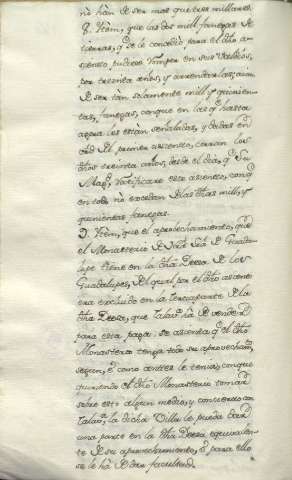 no hàn de ser mas que tres millares.
8. Itèm, que las dos mill fanegas de
tierras, q.e se le concediò para el dho a-
siento, pudiese romper en sus valdios,
por treinta años, y arrendarlas, aian
de ser tàn solamente mill, y quinien-
tas, fanegas, conque en las q.e hasta
agora les estàn señaladas, y dadas en
el primer assiento, corran los
dhos treinta años, desde el dia, q.e Su
Mag.d ratificare este assiento, conq.e
en todo no excedan de las dhas mill, y
quinientas fanegas.
9. Itèm, que el aprovechamiento, que
el Monasterio de Nrà Srà de Guada-
lupe tiene en la dha Deesa de los
Guadalupes, del qual por el dho asiento
era excluido en la tercia parte de la
dha Deesa, que Talav.a hà de vender
para esta paga, se assienta q.e el dho
Monasterio tenga todo su aprovecham.to
segun, è como antes le tenia, conque
queriendo el dho Monasterio tomar
sobre esto algun medio, y concierto con
Talav.a, la dicha Villa le pueda dar
una parte en la dha Deesa equivalen-
te de su aprovechamiento, è para ello
se le hà de dar facultad.